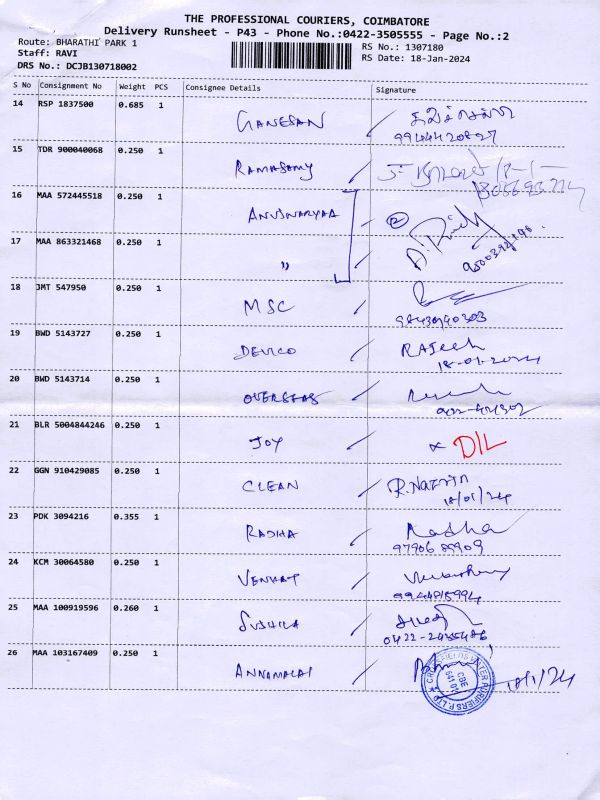 THE PROFESSIONAL COURIERS, COIMBATORE
Delivery Runsheet - P43 - Phone No.:0422-3505555 - Page No.:2
Route: BHARATHI PARK 1
RS No.: 1307180
Staff: RAVI
RS Date: 18-Jan-2024
DRS No.: DCJB130718002
S No Consignment No Weight PCS Consignee Details Signature
14 RSP 1837500 0.685 1 GANESAN
15 TDR 900040068 0.250 1 RAMASAMY
16 MAA 572445518 0.250 1 ②
17 MAA 863321468 0.250 1 "
18 JMT 547950 0.250 1 MSC
19 BWD 5143727 0.250 1 DEVICO RAJeeh
18-01-2024
20 BWD 5143714 0.250 1 OVERSEAS
21 BLR 5004844246 0.250 1 JOY DIL
22 GGN 910429085 0.250 1 CLEAN
18/01/24
23 PDK 3094216 0.355 1 RADHA Radha
97906 89909
24 KCM 30064580 0.250 1 VENKAT
25 MAA 100919596 0.260 1 SUSHILA
26 MAA 103167409 0.250 1 ANNAMALAI
18/1/24